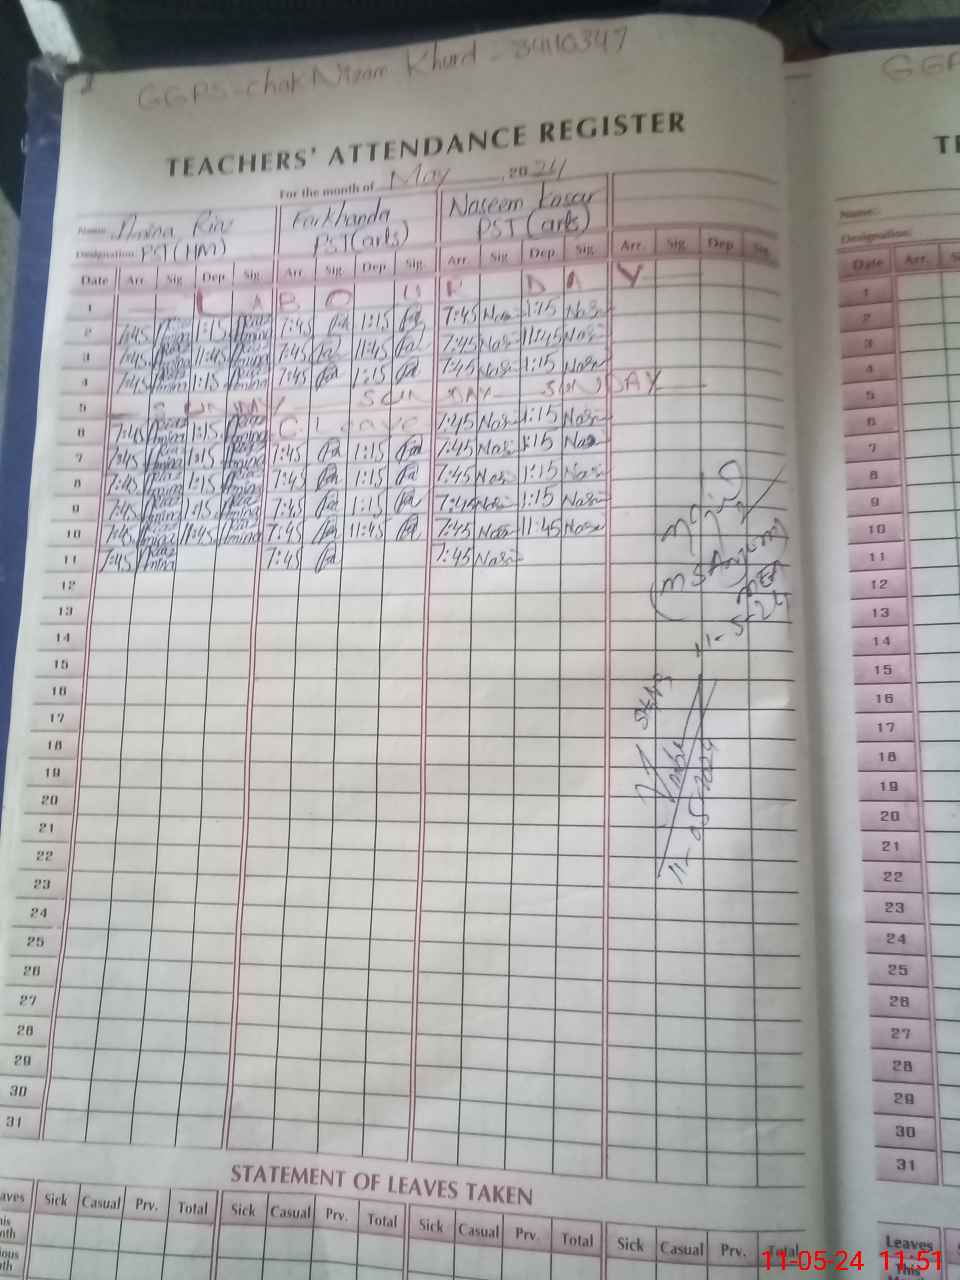 GGPS-chak Nizam Khurd - 34110347
TEACHERS' ATTENDANCE REGISTER
For the month of May 2024
Name: Amina Riaz Farkhanda Naseem Kosar
Designation: PST(HM) PST(arts) PST (arts)
Date Arr. Sig. Dep. Sig. Arr. Sig. Dep. Sig. Arr. Sig. Dep. Sig. Arr. Sig. Dep. Sig.
1 L A B O U R D A Y
2 7:45 1:15 7:45 1:15 7:45 Nas 1:15 Nas
3 7:45 11:45 7:45 11:45 7:45 Nas 11:45 Nas
4 7:45 1:15 7:45 1:15 7:45 Nas 1:15 Nas
5 SUNDAY SUNDAY SUNDAY
6 7:45 1:15 C. Leave 7:45 Nas 1:15 Nas
7 7:45 1:15 7:45 1:15 7:45 Nas 1:15 Nas
8 7:45 1:15 7:45 1:15 7:45 Nas 1:15 Nas
9 7:45 1:15 7:45 1:15 7:45 Nas 1:15 Nas
10 7:45 11:45 7:45 11:45 7:45 Nas 11:45 Nas
11 7:45 7:45 7:45 Nas
12
13
14
15
16
17
18
19
20
21
22
23
24
25
26
27
28
29
30
31
(M S Anjum)
MEA
11-5-24
11-05-2024
STATEMENT OF LEAVES TAKEN
Sick Casual Prv. Total Sick Casual Prv. Total Sick Casual Prv. Total Sick Casual Prv. Total
Name:
Designation:
Date Arr.
1
2
3
4
5
6
7
8
9
10
11
12
13
14
15
16
17
18
19
20
21
22
23
24
25
26
27
28
29
30
31
Leaves
This
11-05-24 11:51